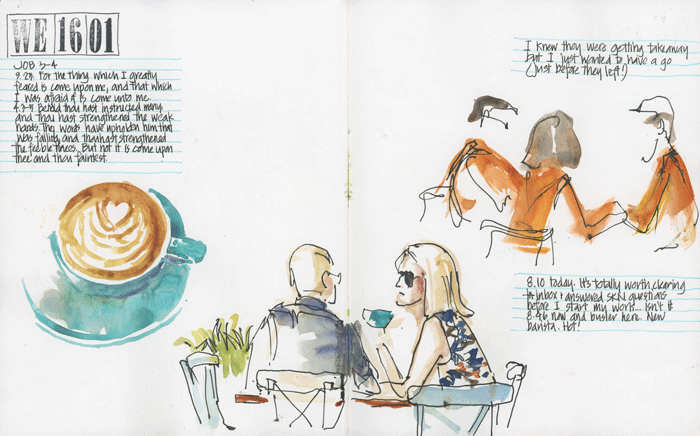 WE 16 01
JOB 3-4
3.25 For the thing which I greatly
feared is come upon me, and that which
I was afraid of is come unto me.
4.3-5 Behold thou hast instructed many
and thou hast strengthened the weak
hands. Thy words have upholden him that
was falling, and thou hast strengthened
the feeble knees. But now it is come upon
thee and thou faintest.
I knew they were getting takeaway
but I just wanted to have a go
(just before they left!)
8.10 today. It's totally worth clearing
inbox + answered SKN questions
before I start my work... Isn't it
8.46 now and busier here. New
barista. Hot!